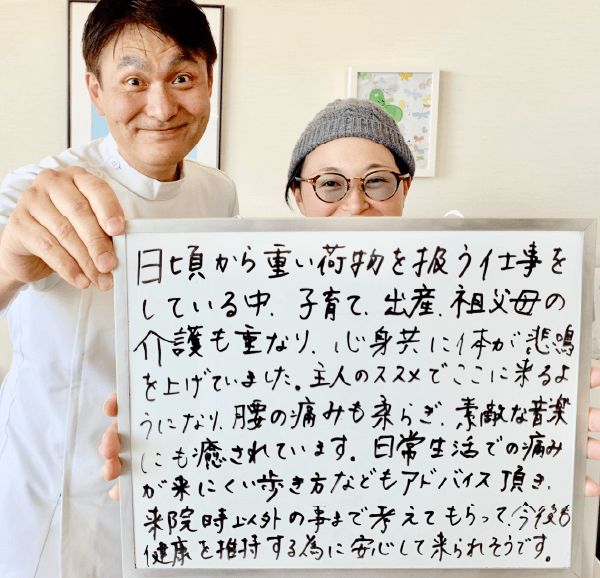 日頃から重い荷物を扱う仕事を
している中、子育て、出産、祖父母の
介護も重なり、心身共に体が悲鳴
を上げていました。主人のススメでここに来るよ
うになり、腰の痛みも柔らぎ、素敵な音楽
にも癒されています。日常生活での痛み
が来にくい歩き方などもアドバイス頂き、
来院時以外の事まで考えてもらって、今後も
健康を維持する為に安心して来られそうです。